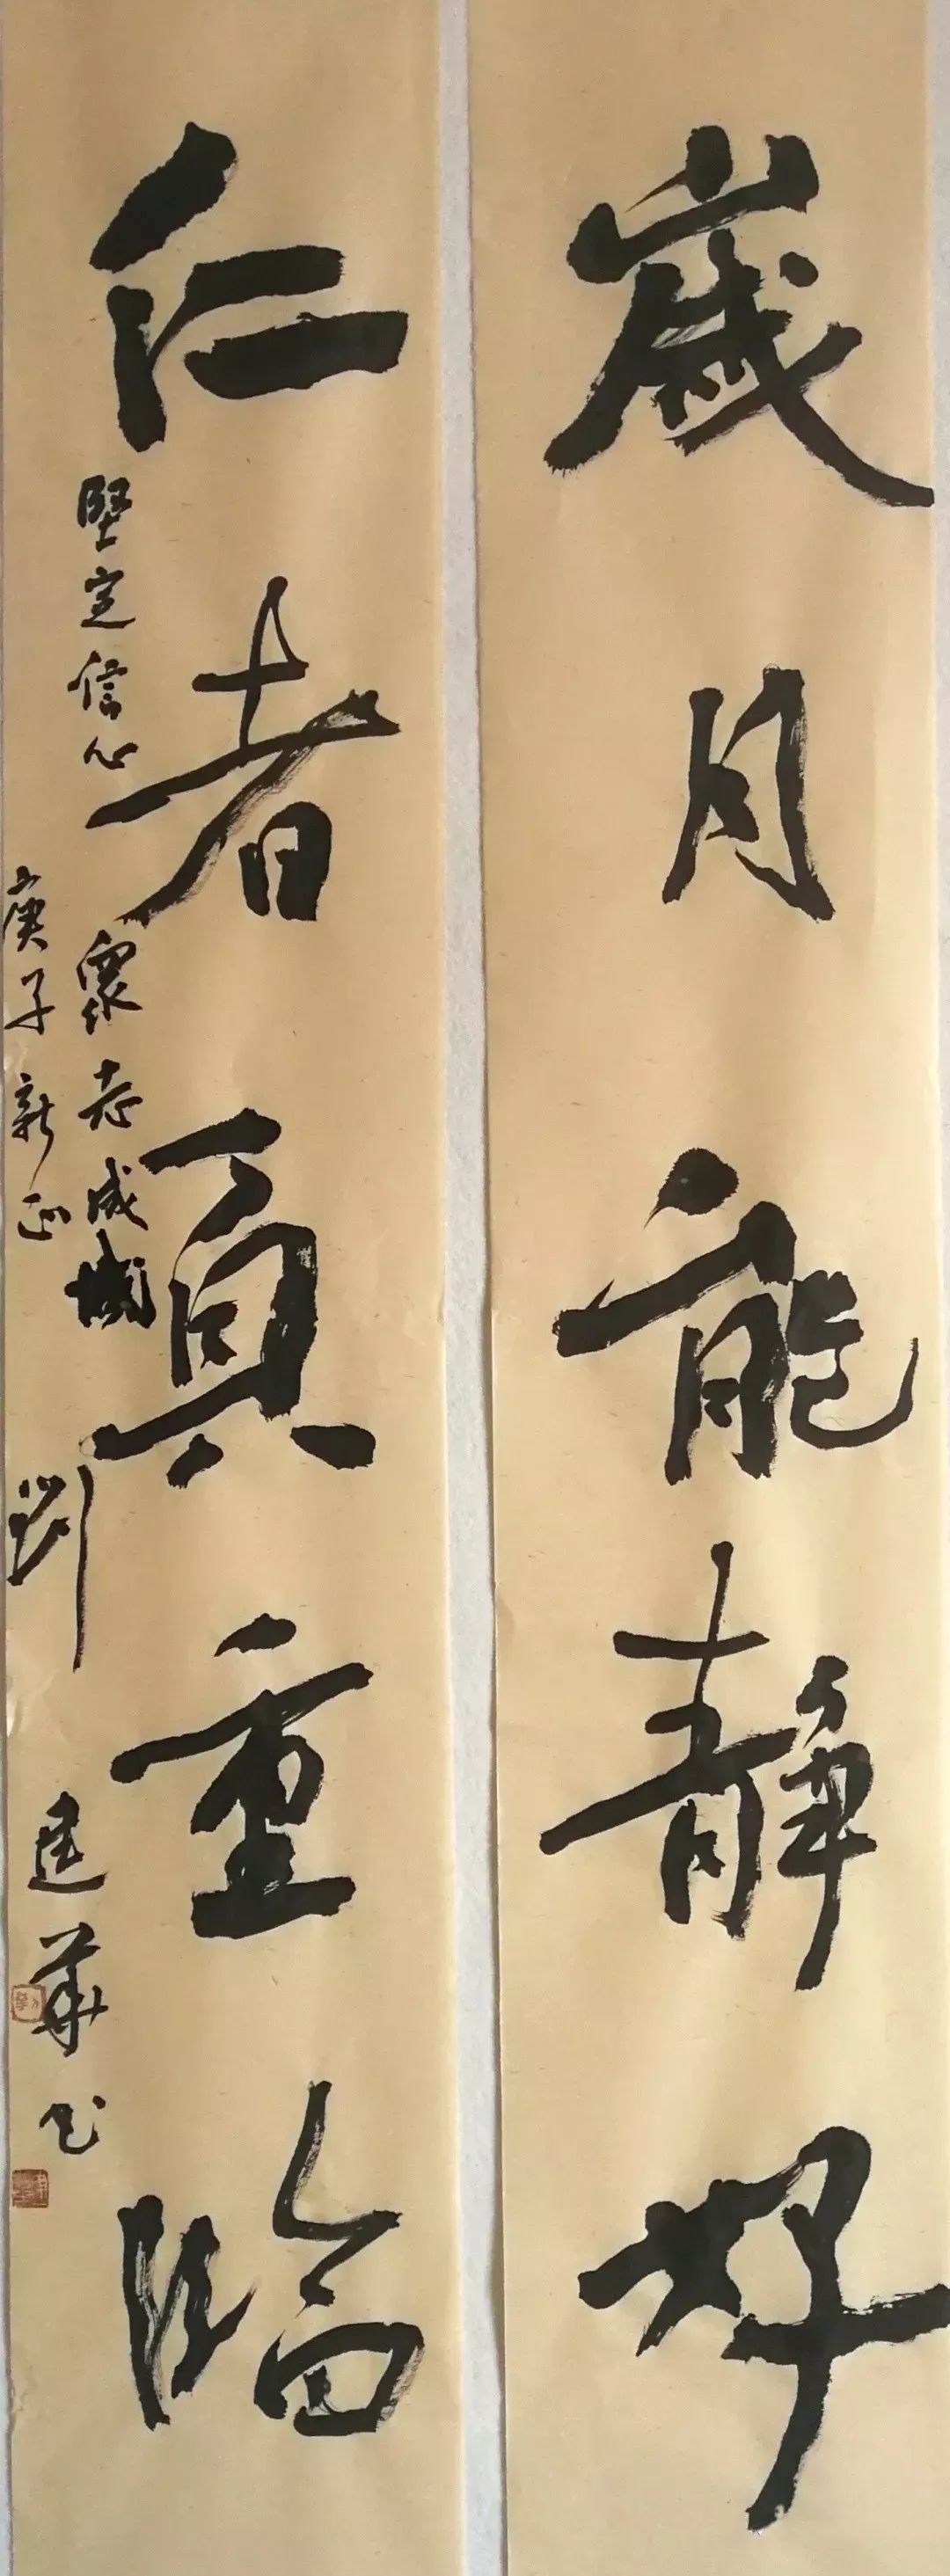 歲月能靜好
仁者真重臨
堅定信心眾志成城
庚子新正
劉建華